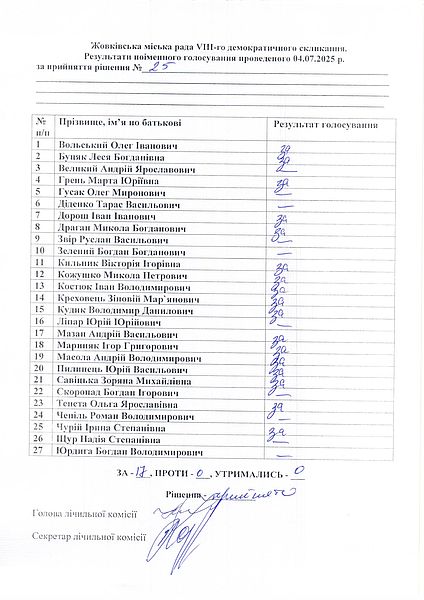 Жовківська міська рада VIII-го демократичного скликання.
Результати поіменного голосування проведеного 04.07.2025 р.
за прийняття рішення № 25
№ п/п Прізвище, ім’я по батькові Результат голосування
1 Вольський Олег Іванович за
2 Буняк Леся Богданівна за
3 Великий Андрій Ярославович —
4 Грень Марта Юріївна за
5 Гусак Олег Миронович —
6 Діденко Тарас Васильович —
7 Дорош Іван Іванович за
8 Драган Микола Богданович за
9 Звір Руслан Васильович —
10 Зелений Богдан Богданович —
11 Кильник Вікторія Ігорівна за
12 Кожушко Микола Петрович за
13 Костюк Іван Володимирович за
14 Креховець Зіновій Мар`янович за
15 Кудик Володимир Данилович за
16 Ліпар Юрій Юрійович —
17 Мазан Андрій Васильович за
18 Мариняк Ігор Григорович за
19 Масола Андрій Володимирович за
20 Пилипець Юрій Васильович за
21 Савіцька Зоряна Михайлівна за
22 Скоропад Богдан Ігорович —
23 Тенета Ольга Ярославівна за
24 Чепіль Роман Володимирович —
25 Чурій Ірина Степанівна за
26 Щур Надія Степанівна —
27 Юрдига Богдан Володимирович —
ЗА - 17, ПРОТИ - 0, УТРИМАЛИСЬ - 0
Рішення - прийнято
Голова лічильної комісії
Секретар лічильної комісії